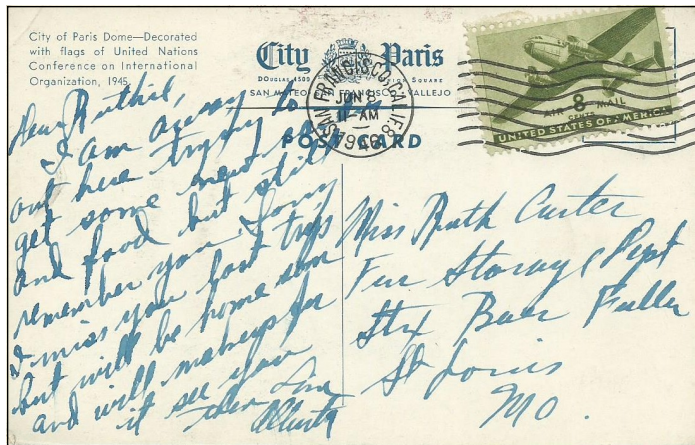 City of Paris Dome—Decorated
with flags of United Nations
Conference on International
Organization, 1945.
City Paris
DOUGLAS 4509 UNION SQUARE
SAN MATEO SAN FRANCISCO VALLEJO
POST CARD
SAN FRANCISCO, CALIF. 8
JUN 8
11-AM
1946
AIR MAIL
8
CENTS
UNITED STATES OF AMERICA
Dear Ruthie,
I am away
out here trying to
get some meat
and food but still
remember you. Sorry
I miss you last trip
but will be home soon
and will makeup for
it see you
then Love
Alberta
Miss Ruth Carter
Fur Storage Dept
Stix Baer Fuller
St Louis
MO.